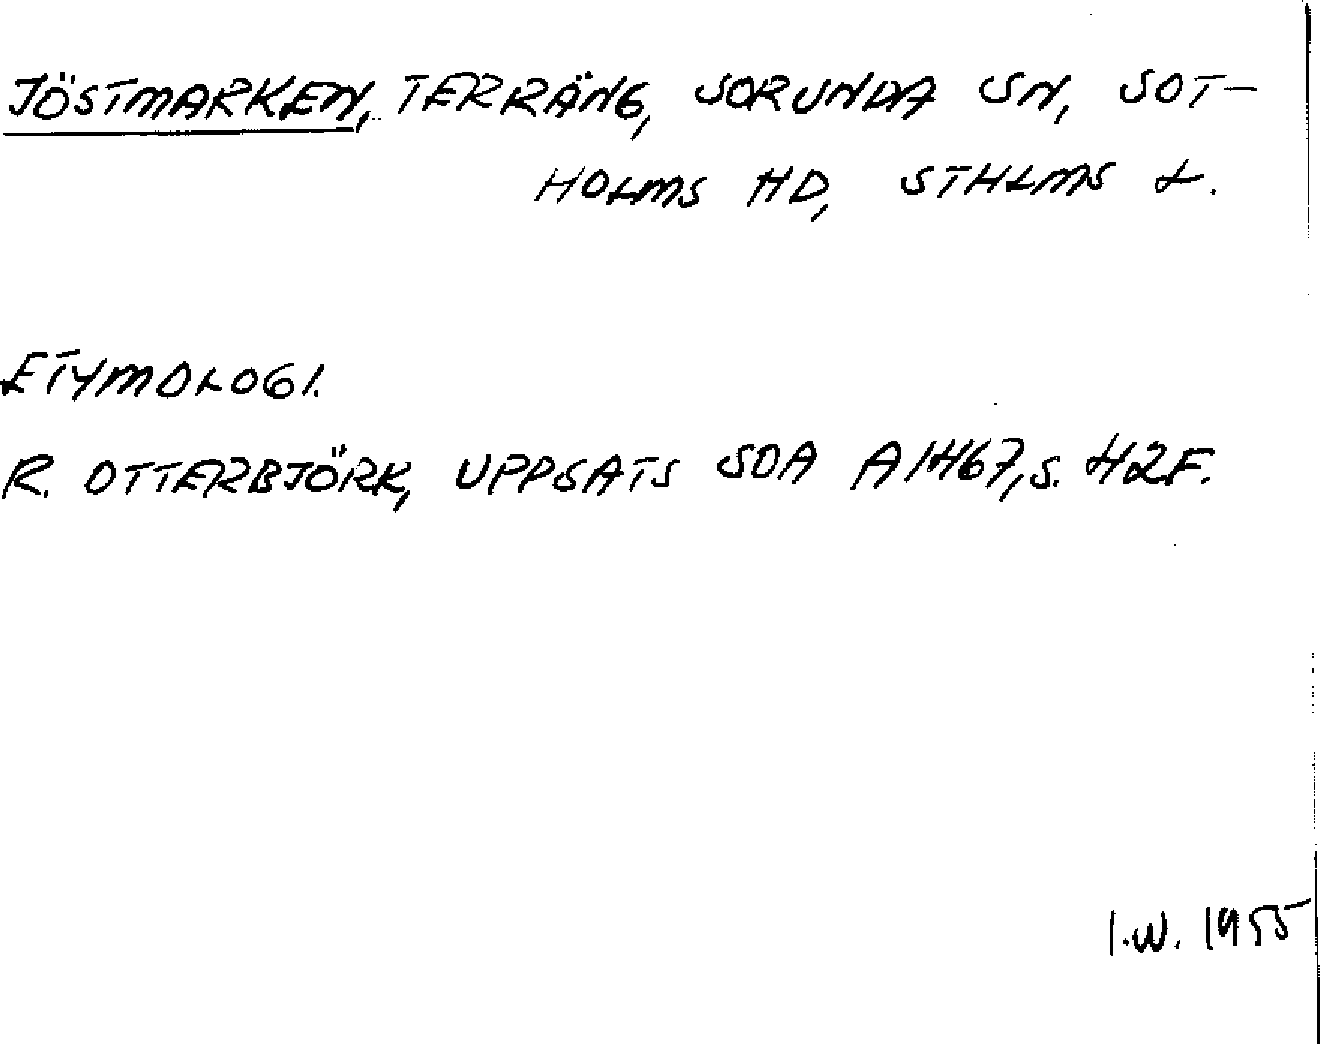 JÖSTMARKEN, TERRÄNG, SORUNDA SN, SOT-
HOLMS HD, STHLMS L.
ETYMOLOGI.
R. OTTERBJÖRK, UPPSATS SOA A1467, S. 42F.
I.W. 1955